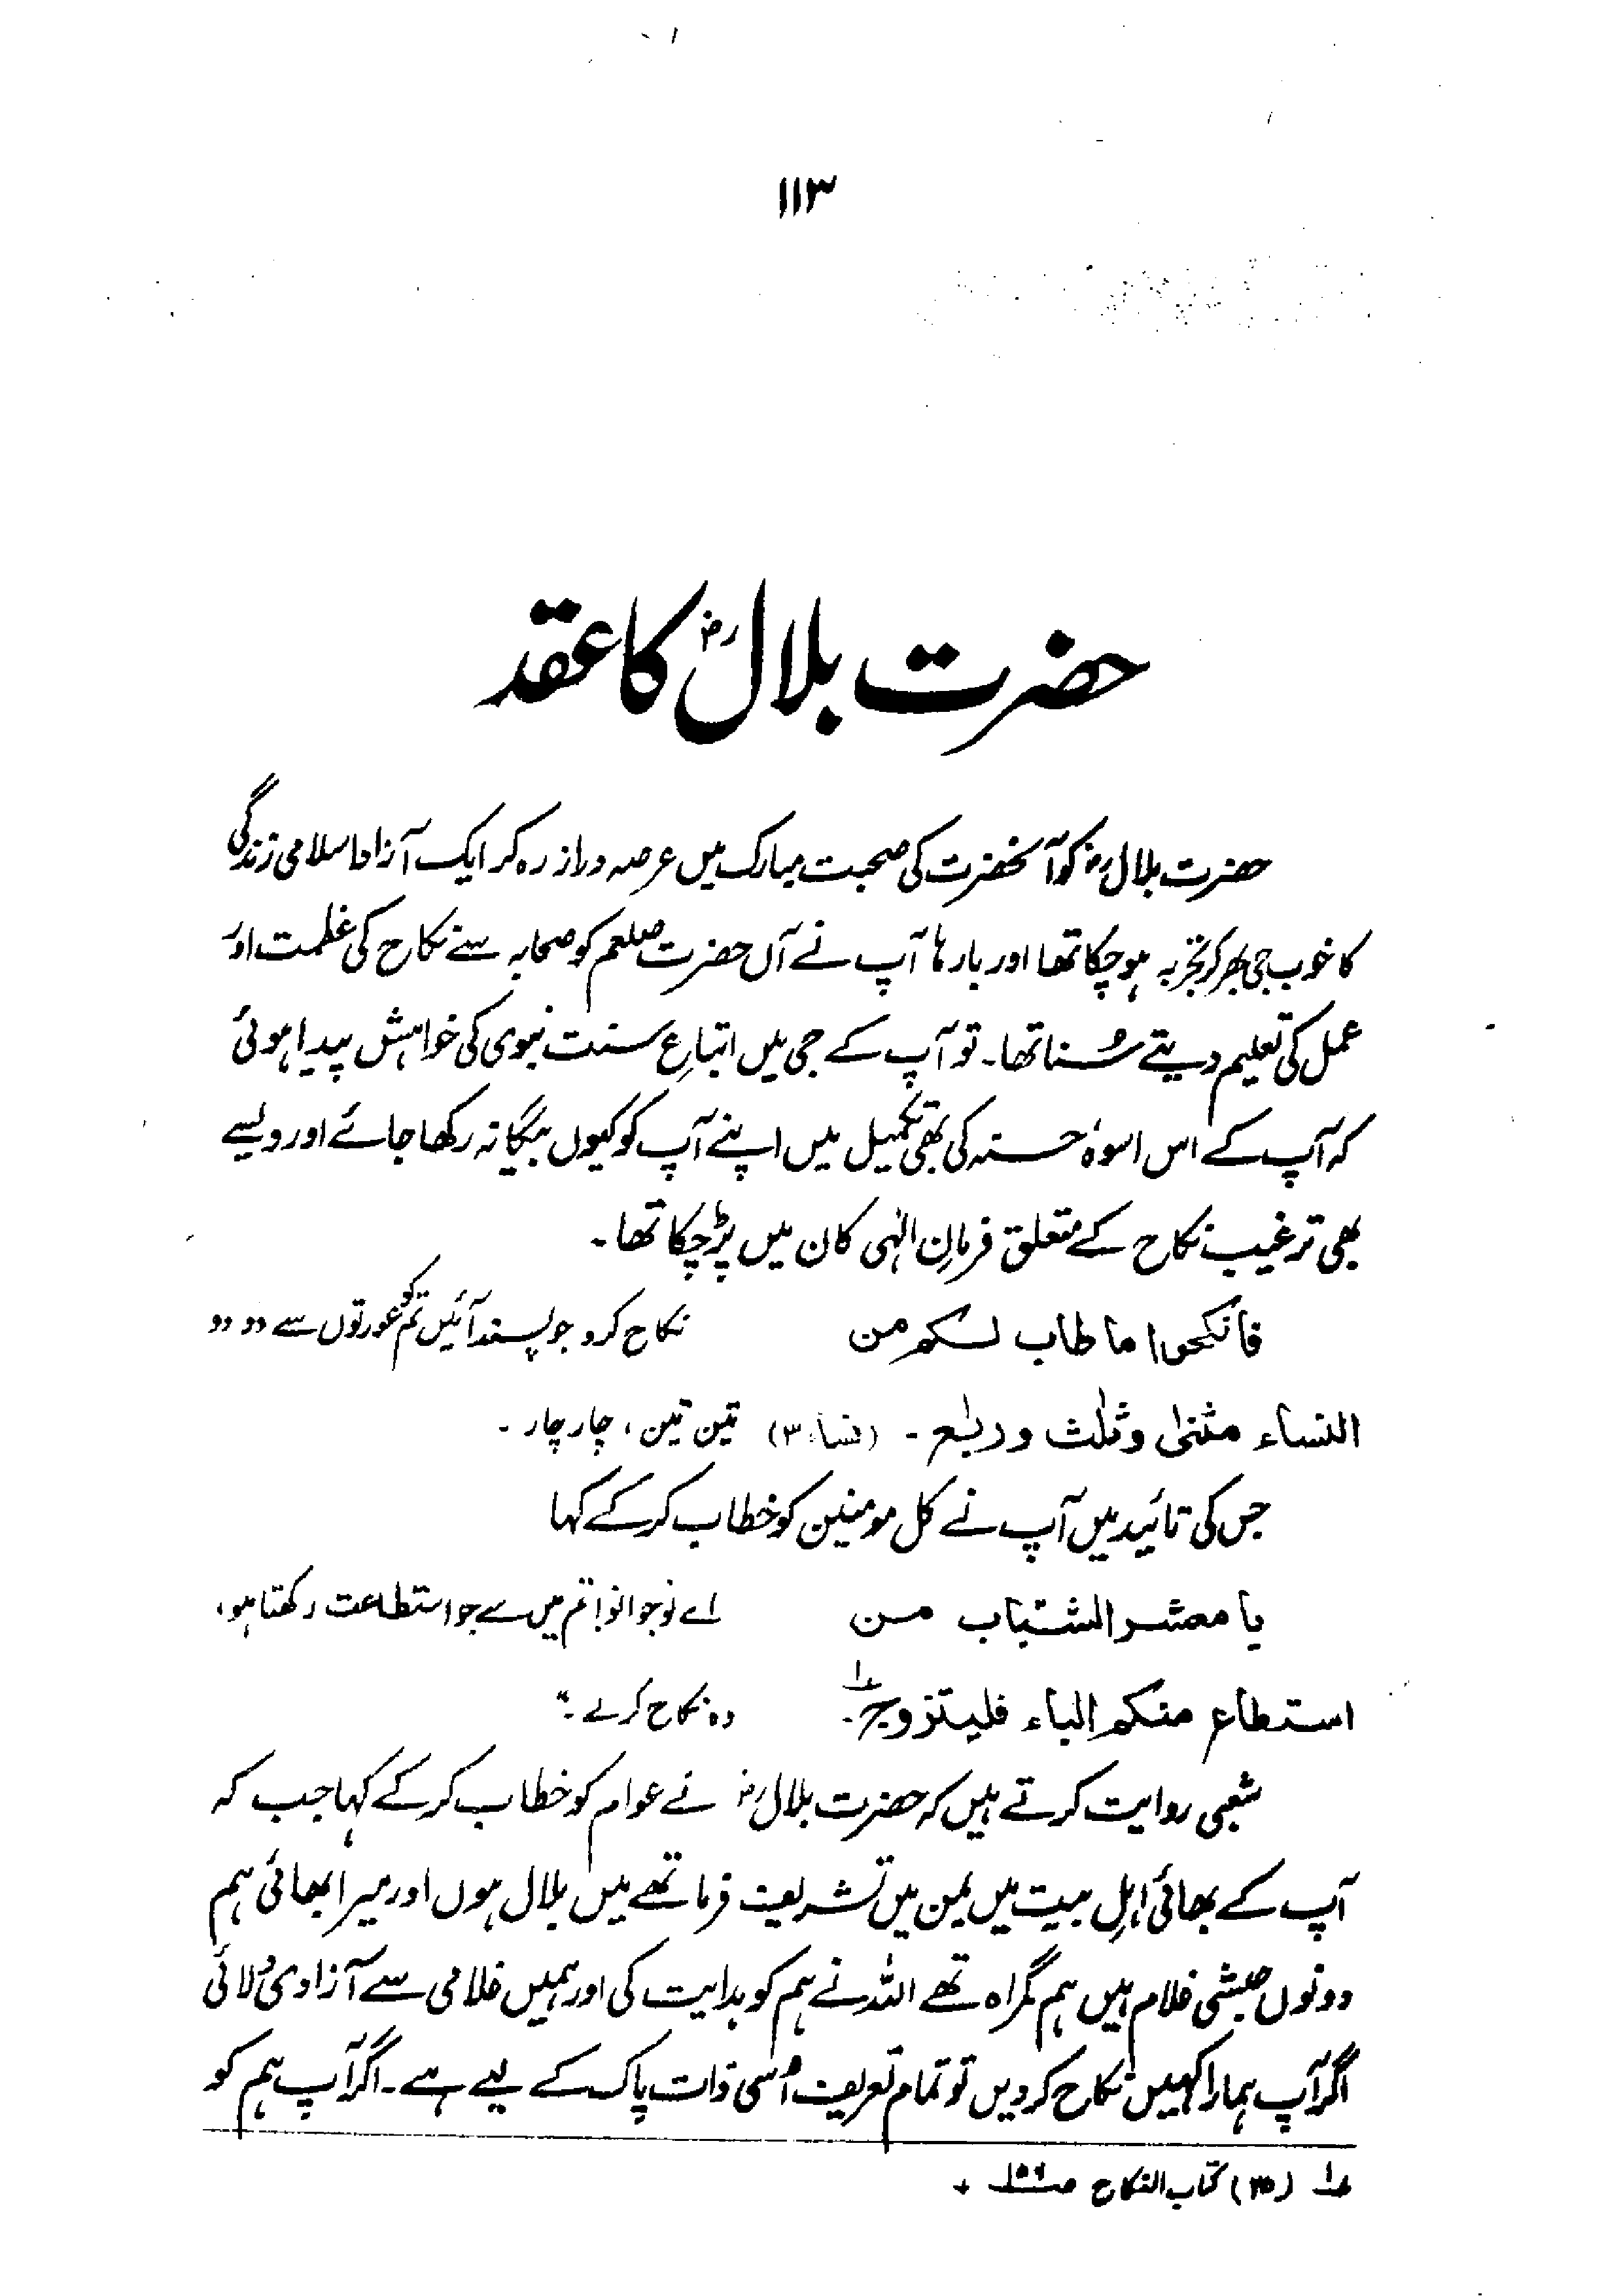 ۱۱۳
حضرت بلالؓ کا عقد
حضرت بلالؓ کو آنحضرت کی صحبت مبارک میں عرصہ دراز رہ کر ایک آزاد اسلامی زندگی
کا خوب جی بھر کر تجربہ ہو چکا تھا اور بارہا آپ نے آں حضرت صلعم کو صحابہ سے نکاح کی عظمت اور
عمل کی تعلیم دیتے سُنا تھا۔ تو آپ کے جی میں اتباعِ سنت نبوی کی خواہش پیدا ہوئی
کہ آپ کے اس اسوۂ حسنہ کی بھی تکمیل میں اپنے آپ کو کیوں بیگانہ رکھا جائے اور ویسے
بھی ترغیب نکاح کے متعلق فرمانِ الٰہی کان میں پڑ چکا تھا۔
فانکحوا ما طاب لکم من نکاح کرو جو پسند آئیں تم کو عورتوں سے دو دو
النساء مثنیٰ وثلٰث وربٰع۔ (نساء:۳) تین تین، چار چار۔
جس کی تائید میں آپ نے کل مومنین کو خطاب کر کے کہا
یا معشر الشباب من اے نوجوانو! تم میں سے جو استطاعت رکھتا ہو،
استطاع منکم الباء فلیتزوج۔ ؎۱ وہ نکاح کرلے۔"
شعبی روایت کرتے ہیں کہ حضرت بلالؓ نے عوام کو خطاب کر کے کہا جب کہ
آپ کے بھائی اہلِ بیت میں یمن میں تشریف فرما تھے میں بلال ہوں اور میرا بھائی ہم
دونوں حبشی غلام ہیں ہم گمراہ تھے اللہ نے ہم کو ہدایت کی اور ہمیں غلامی سے آزادی دلائی
اگر آپ ہمارا کہیں نکاح کر دیں تو تمام تعریف اُسی ذات پاک کے لیے ہے۔ اگر آپ ہم کو
؎۱ (۳۵) کتاب النکاح